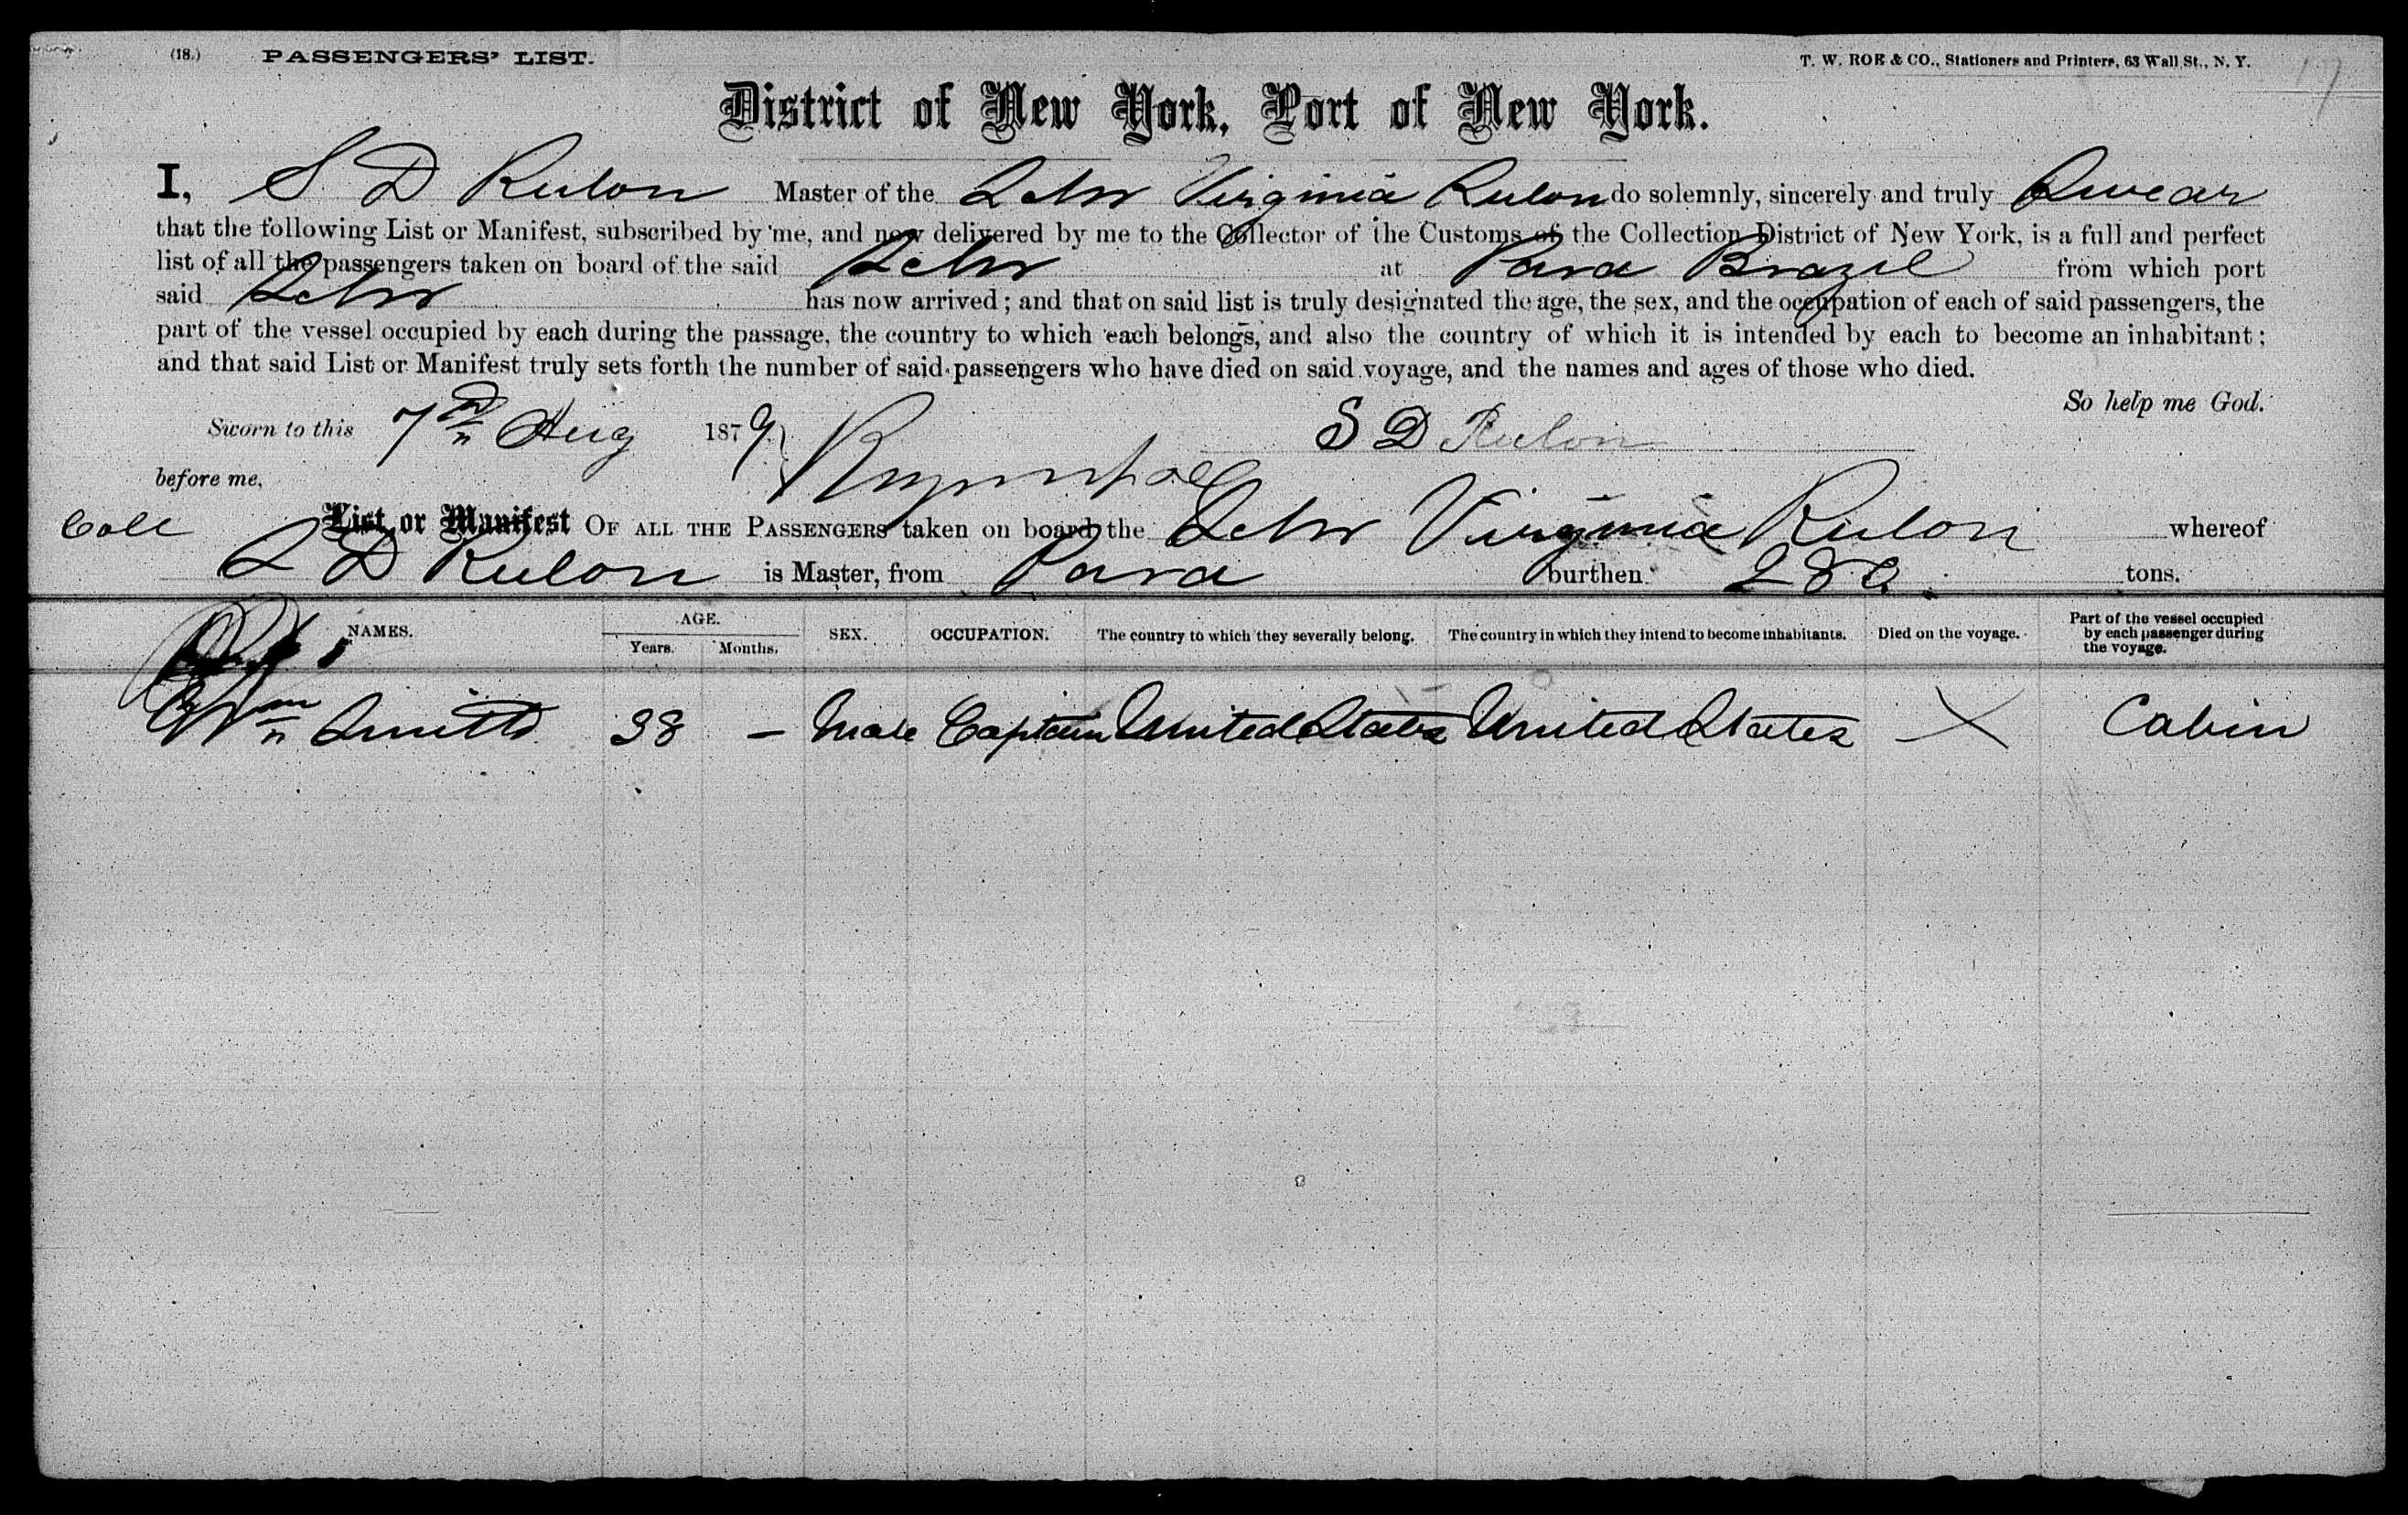 (18.) PASSENGERS' LIST. T. W. ROE & CO., Stationers and Printers, 63 Wall St., N. Y.
District of New York, Port of New York.
I, S D Rulon Master of the Schr Virginia Rulon do solemnly, sincerely and truly Swear
that the following List or Manifest, subscribed by me, and now delivered by me to the Collector of the Customs of the Collection District of New York, is a full and perfect
list of all the passengers taken on board of the said Schr at Para Brazil from which port
said Schr has now arrived; and that on said list is truly designated the age, the sex, and the occupation of each of said passengers, the
part of the vessel occupied by each during the passage, the country to which each belongs, and also the country of which it is intended by each to become an inhabitant;
and that said List or Manifest truly sets forth the number of said passengers who have died on said voyage, and the names and ages of those who died.
So help me God.
Sworn to this 7th Aug 1879 S D Rulon
before me,
List or Manifest OF ALL THE PASSENGERS taken on board the Schr Virginia Rulon whereof
S D Rulon is Master, from Para burthen tons.
NAMES. AGE. Years. Months. SEX. OCCUPATION. The country to which they severally belong. The country in which they intend to become inhabitants. Died on the voyage. Part of the vessel occupied by each passenger during the voyage.
Wm Smith 38 – Male Captain United States United States X Cabin